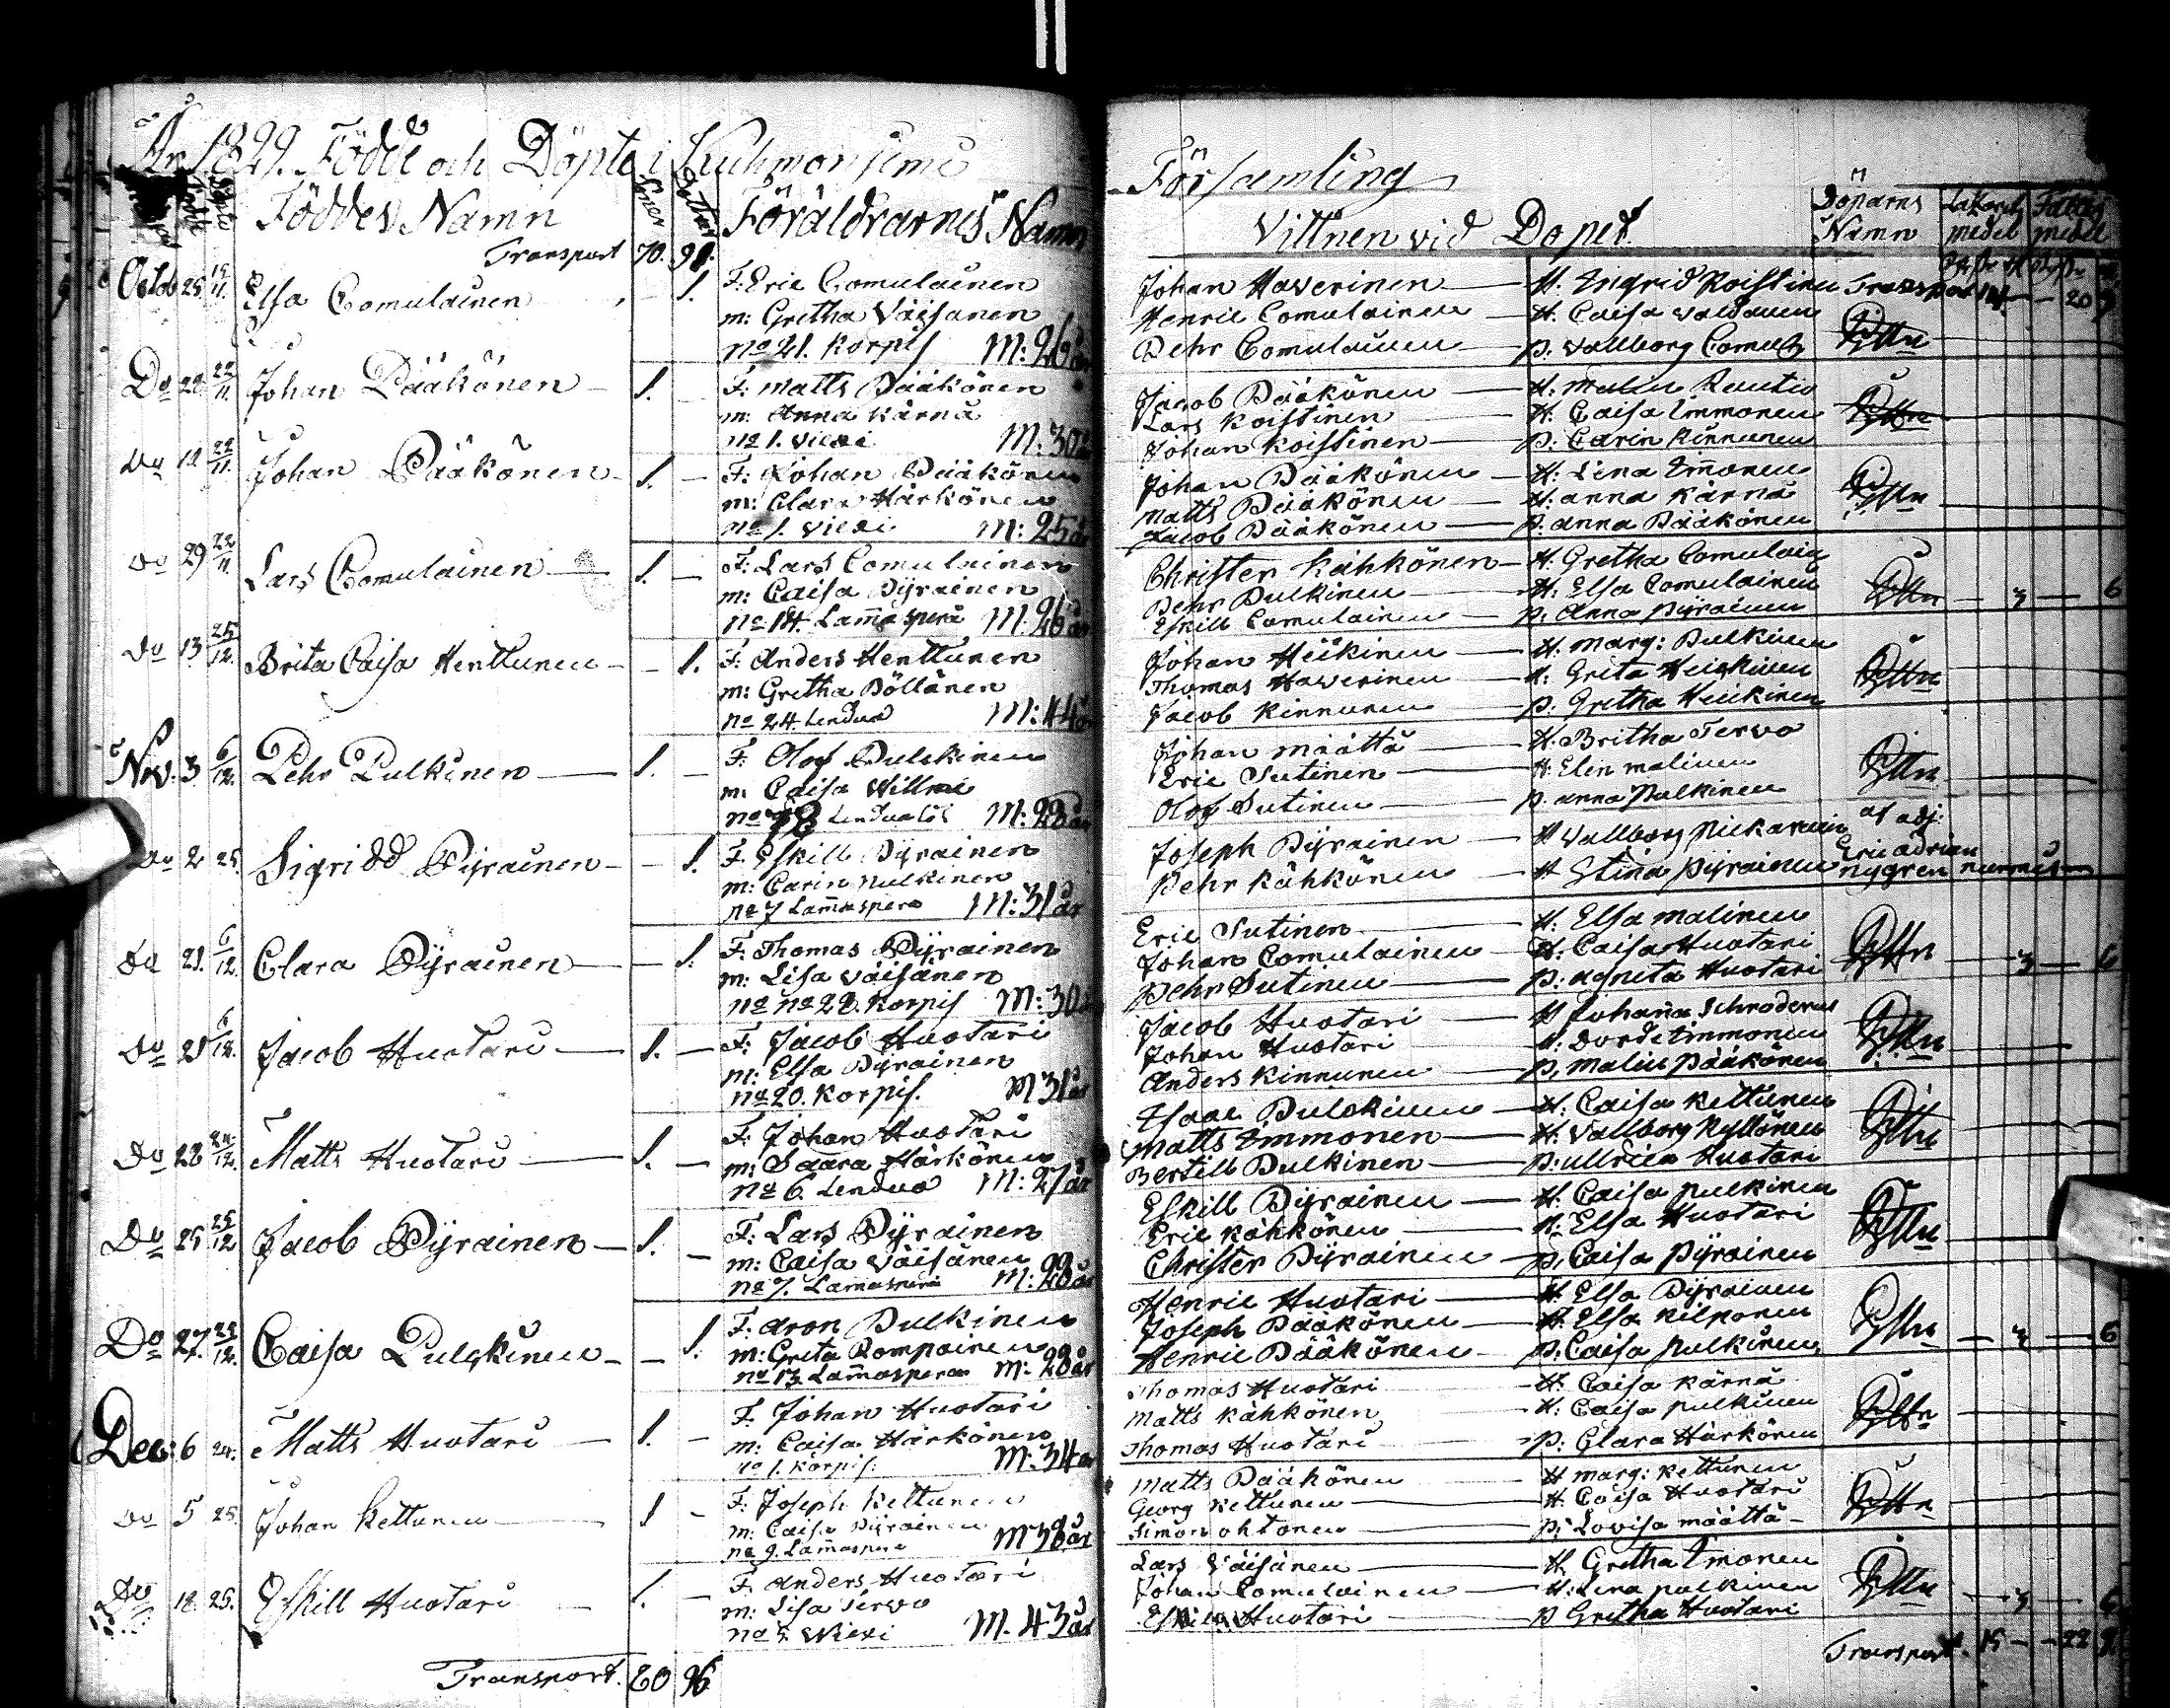 År 1829. Födde och Döpte i Kuhmoniemi
Församling
Födde Döpte Föddes Namn Söner Döttrar Föräldrarnes Namn
Vittnen vid Dopet. Döparns Namn
Transport 70. 91.
Octob 25 15/11. Elsa Comulainen 1. F: Eric Comulainen
m: Gretha Väisänen
no 21. Korpis M: 26 år
Johan Haverinen H. Ingrid Koistinen Transport
Henric Comulainen H. Caisa
Pehr Comulainen p. Wallborg Comul
Do 22/11. Johan Pääkönen 1. F: Matts Pääkönen
m: Anna Kärnä
no 1. Viexi M: 30
Jacob Pääkönen H: Malin Rautio
Lars Koistinen H: Caisa Immonen
Johan Koistinen p: Carin Kinnunen
Do 12 22/11. Johan Pääkönen 1. F: Johan Pääkönen
m: Clara Härkönen
no 1. Viexi M: 25 år
Johan Pääkönen H: Lina Immonen
Matts Pääkönen H: Anna Kärnä
Jacob Pääkönen p. Anna Pääkönen
Do 29 22/11. Lars Comulainen 1. F: Lars Comulainen
m: Caisa Pyrainen
no 14. Lammasperä M. 26 år
Christer Kähkönen H: Gretha Comulain
Pehr Pulkinen H: Elsa Comulainen
Eskill Comulainen p. Anna Pyrainen 3 6
Do 13 25/12. Brita Caisa Henttunen 1. F: Anders Henttunen
m: Gretha Pöllänen
no 24 Lendua M: 44 år
Johan Heikinen H. Marg: Pulkinen
Thomas Haverinen H: Greta Heikinen
Jacob Kinnunen p. Gretha Heikinen
Nov. 3 6/12. Pehr Pulkinen 1. F: Olof Pulckinen
m. Caisa Willmi
M: 28 år
Johan Määttä H: Britha Tervo
Eric Sutinen H: Elin Malinen
Olof Sutinen p. Anna Pulkinen
Do 2 25. Sigridd Pyrainen 1. F. Eskill Pyrainen
m: Carin Pulkinen
no 7 Lammasperä M: 31 år
Joseph Pyrainen H Wallborg Piekarinen af adj:
Pehr Kähkönen H Stina Pyrainen Eric Adrian
Nygren
Do 21. 6/12. Clara Pyrainen 1. F: Thomas Pyrainen
m: Lisa Väisänen
no no 28. Korpis M: 30
Eric Sutinen H: Elsa Malinen
Johan Comulainen H: Caisa Huotari
Pehr Sutinen p: Agneta Huotari 3 6
Do 21 6/12. Jacob Huotari 1. F: Jacob Huotari
m: Elsa Pyrainen
no 20. Korpis. M 31 år
Jacob Huotari H Johanna Schroderus
Johan Huotari H: Dorde Immonen
Anders Kinnunen p, Malin Pääkönen
Do 28 24/12. Matts Huotari 1. F: Johan Huotari
m: Saara Härkönen
no 6. Lendua M: 27 år
Isaac Pulckinen H: Caisa Kettunen
Matts Immonen H: Wallborg Kyllönen
Bertill Pulkinen p: Ullrica Huotari
Do 25 25/12 Jacob Pyrainen 1. F: Lars Pyrainen
m: Caisa Väisänen
no 7. Lammasperä M: 28 år
Eskill Pyrainen H: Caisa Pulkinen
Eric Kähkönen H: Elsa Huotari
Christer Pyrainen p, Caisa Pyrainen
Do 27. 25/12. Caisa Pulckinen 1. F: Aron Pulkinen
m: Greta Rompainen
no 13 Lammasperä M: 28 år
Henric Huotari H: Elsa Pyrainen
Joseph Pääkönen H. Elsa Kilponen
Henric Pääkönen p: Caisa Pulkinen 3 6
Dec: 6 24. Matts Huotari 1. F. Johan Huotari
m: Caisa Härkönen
no 1. Korpis. M: 34 år
Thomas Huotari H: Caisa Kärnä
Matts Kähkönen H: Caisa Pulkinen
Thomas Huotari p: Clara Härkönen
Do 5 25. Johan Kettunen 1 F: Joseph Kettunen
m: Caisa Pyrainen
no 9. Lammasperä M 38 år
Matts Pääkönen H Marg: Kettunen
Georg Kettunen H Caisa Huotari
Simon Ohtonen p: Lovisa Määttä
Do 18. 25. Eskill Huotari 1. F. Anders Huotari
m: Lisa Tervo
no Wiexi M. 43 år
Lars Väisänen H Gretha Imonen
Johan Comulainen H: Lena Pulkinen
Eskill Huotari p Gretha Huotari 3 6
Transport. 80 96
Transport. 15 22